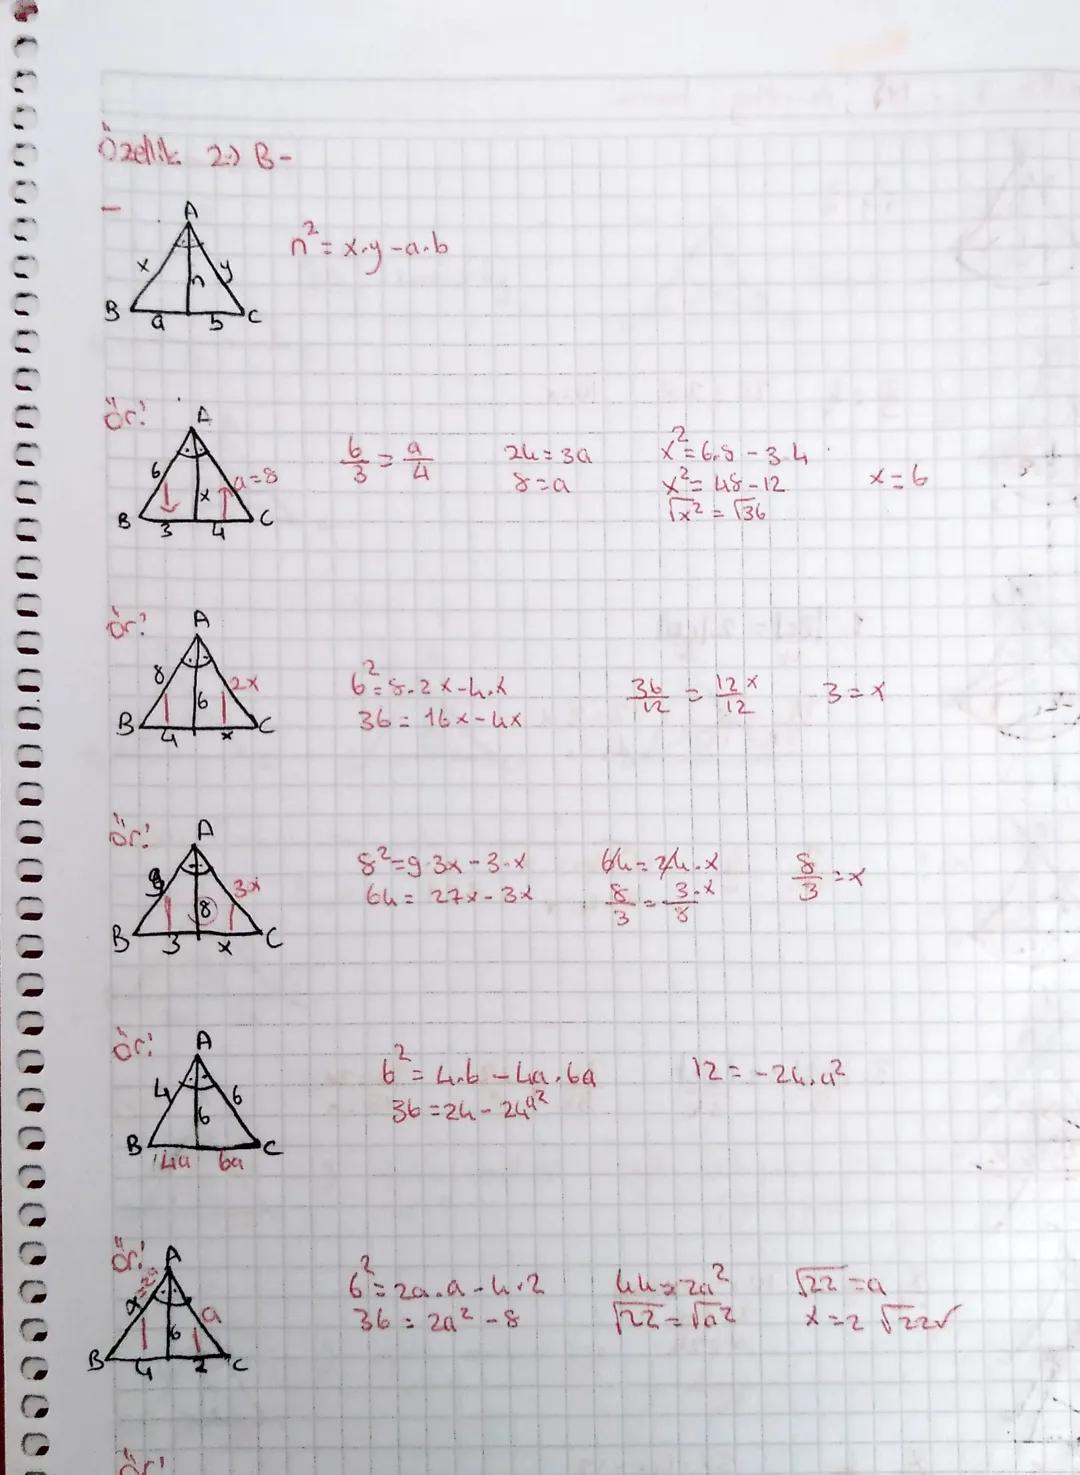 Özellik 2:) B-
A
n² = x.y - a.b
x n y
B a b C
Ör:
A
6 x a=8
B 3 4 C
6/3 = a/4
24 = 3a
8 = a
x² = 6.8 - 3.4
x² = 48 - 12
√x² = √36
x = 6
Ör:
A
8 6 2x
B 4 x C
6² = 8.2x - 4.x
36 = 16x - 4x
36/12 = 12x/12
3 = x
Ör:
A
9 8 3x
B 3 x C
8² = 9.3x - 3.x
64 = 27x - 3x
64 = 24.x
8/3 = 3.x/8
8/3 = x
Ör:
A
4 6 6
B 4a 6a C
6² = 4.6 - 4a.6a
36 = 24 - 24a²
12 = -24.a²
Ör:
A
x=2a 6 a
B 4 2 C
6² = 2a.a - 4.2
36 = 2a² - 8
44 = 2a²
√22 = √a²
√22 = a
x = 2√22
Ör: